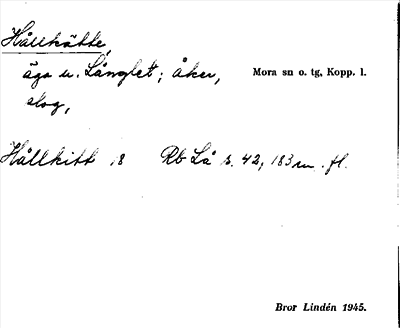 Hållkätte,
äga u. Långlet; åker, Mora sn o. tg, Kopp. l.
skog,
Hållkitt 18 Rb Lå s. 42, 183 m. fl.
Bror Lindén 1945.